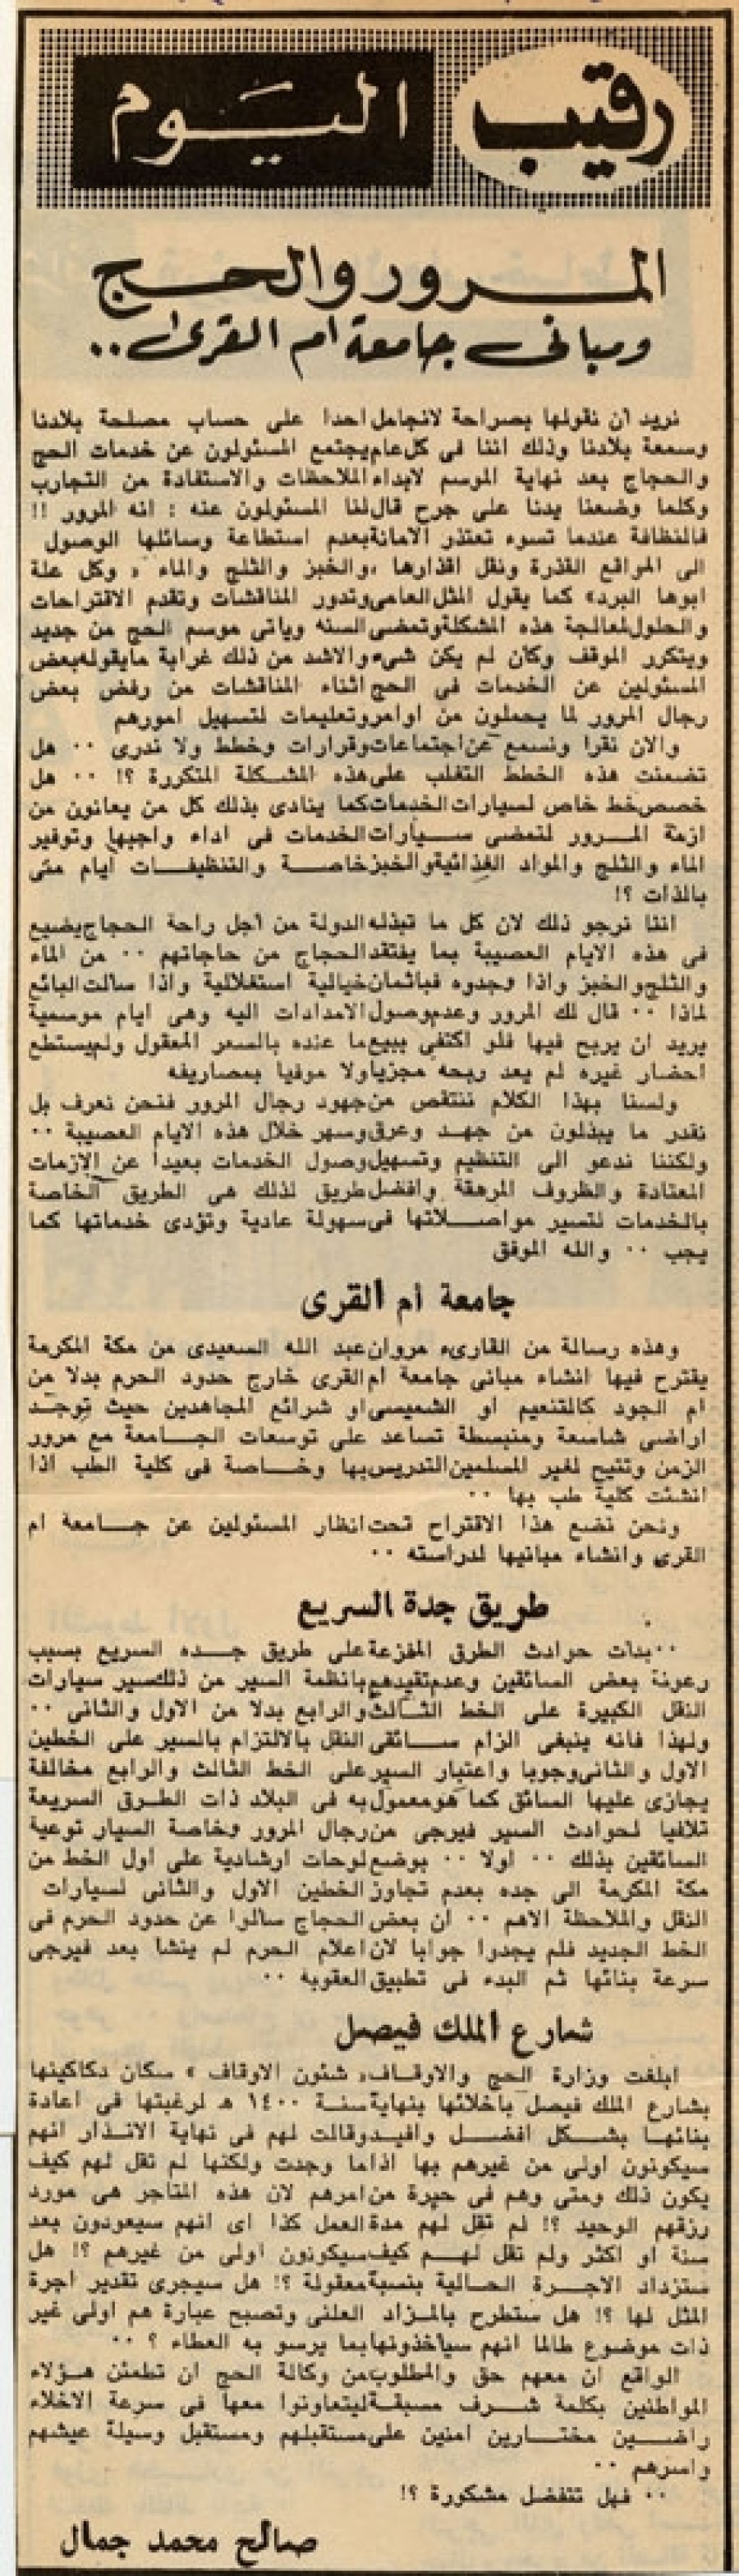 رقيب اليوم
المرور والحج
ومبانى جامعة ام القرى ..
نريد أن نقولها بصراحة لانجامل احدا على حساب مصلحة بلادنا
وسمعة بلادنا وذلك اننا فى كل عام يجتمع المسئولون عن خدمات الحج
والحجاج بعد نهاية الموسم لابداء الملاحظات والاستفادة من التجارب
وكلما وضعنا يدنا على جرح قال لنا المسئولون عنه : انه المرور !!
فالنظافة عندما تسوء تعتذر الامانة بعدم استطاعة وسائلها الوصول
الى المواقع القذرة ونقل اقذارها ، والخبز والثلج والماء « وكل علة
ابوها البرد » كما يقول المثل العامى وتدور المناقشات وتقدم الاقتراحات
والحلول لمعالجة هذه المشكلة وتمضى السنه وياتى موسم الحج من جديد
ويتكرر الموقف وكأن لم يكن شىء والاشد من ذلك غرابة مايقوله بعض
المسئولين عن الخدمات فى الحج اثناء المناقشات من رفض بعض
رجال المرور لما يحملون من اوامر وتعليمات لتسهيل امورهم
والان نقرا ونسمع عن اجتماعات وقرارات وخطط ولا ندرى ٠٠ هل
تضمنت هذه الخطط التغلب على هذه المشكلة المتكررة ؟! ٠٠ هل
خصص خط خاص لسيارات الخدمات كما ينادى بذلك كل من يعانون من
ازمة المرور لتمضى سيارات الخدمات فى اداء واجبها وتوفير
الماء والثلج والمواد الغذائية والخبز خاصة والتنظيفات أيام منى
بالذات ؟!
اننا نرجو ذلك لان كل ما تبذله الدولة من أجل راحة الحجاج يضيع
فى هذه الايام العصيبة بما يفتقد الحجاج من حاجاتهم ٠٠ من الماء
والثلج والخبز واذا وجدوه فباثمان خيالية استغلالية واذا سالت البائع
لماذا ٠٠ قال لك المرور وعدم وصول الامدادات اليه وهى ايام موسمية
يريد ان يربح فيها فلو اكتفى ببيع ما عنده بالسعر المعقول ولم يستطع
احضار غيره لم يعد ربحه مجزيا ولا موفيا بمصاريفه
ولسنا بهذا الكلام ننتقص من جهود رجال المرور فنحن نعرف بل
نقدر ما يبذلون من جهد وعرق وسهر خلال هذه الايام العصيبة ٠٠
ولكننا ندعو الى التنظيم وتسهيل وصول الخدمات بعيدا عن الازمات
المعتادة والظروف المرهقة وافضل طريق لذلك هى الطريق الخاصة
بالخدمات لتسير مواصلاتها فى سهولة عادية وتؤدى خدماتها كما
يجب ٠٠ والله الموفق
جامعة أم القرى
وهذه رسالة من القارىء مروان عبد الله السعيدى من مكة المكرمة
يقترح فيها انشاء مبانى جامعة ام القرى خارج حدود الحرم بدلا من
ام الجود كالتنعيم او الشميسى او شرائع المجاهدين حيث توجد
اراضى شاسعة ومنبسطة تساعد على توسعات الجامعة مع مرور
الزمن وتتيح لغير المسلمين التدريس بها وخاصة فى كلية الطب اذا
انشئت كلية طب بها ٠٠
ونحن نضع هذا الاقتراح تحت انظار المسئولين عن جامعة ام
القرى وانشاء مبانيها لدراسته ٠٠
طريق جدة السريع
٠٠ بدات حوادث الطرق المفزعة على طريق جده السريع بسبب
رعونة بعض السائقين وعدم تقيدهم بانظمة السير من ذلك سير سيارات
النقل الكبيرة على الخط الثالث والرابع بدلا من الاول والثانى ٠٠
ولهذا فانه ينبغى الزام سائقى النقل بالالتزام بالسير على الخطين
الاول والثانى وجوبا واعتبار السير على الخط الثالث والرابع مخالفة
يجازى عليها السائق كما هو معمول به فى البلاد ذات الطرق السريعة
تلافيا لحوادث السير فيرجى من رجال المرور وخاصة السيار توعية
السائقين بذلك ٠٠ اولا ٠٠ بوضع لوحات ارشادية على اول الخط من
مكة المكرمة الى جده بعدم تجاوز الخطين الاول والثانى لسيارات
النقل والملاحظة الاهم ٠٠ ان بعض الحجاج سالوا عن حدود الحرم فى
الخط الجديد فلم يجدوا جوابا لان اعلام الحرم لم ينشا بعد فيرجى
سرعة بنائها ثم البدء فى تطبيق العقوبة ٠٠
شارع الملك فيصل
ابلغت وزارة الحج والاوقاف « شئون الاوقاف » سكان دكاكينها
بشارع الملك فيصل باخلائها بنهاية سنة ١٤٠٠ هـ لرغبتها فى اعادة
بنائها بشكل افضل وافيد وقالت لهم فى نهاية الانذار انهم
سيكونون اولى من غيرهم بها اذا ما وجدت ولكنها لم تقل لهم كيف
يكون ذلك ومتى وهم فى حيرة من امرهم لان هذه المتاجر هى مورد
رزقهم الوحيد ؟! لم تقل لهم مدة العمل كذا اى انهم سيعودون بعد
سنة او اكثر ولم تقل لهم كيف سيكونون اولى من غيرهم ؟! هل
ستزداد الاجرة الحالية بنسبة معقولة ؟! هل سيجرى تقدير اجرة
المثل لها ؟! هل ستطرح بالمزاد العلنى وتصبح عبارة هم اولى غير
ذات موضوع طالما انهم سيأخذونها بما يرسو به العطاء ؟ ٠٠
الواقع ان معهم حق والمطلوب من وكالة الحج ان تطمئن هؤلاء
المواطنين بكلمة شرف مسبقة ليتعاونوا معها فى سرعة الاخلاء
راضين مختارين امنين على مستقبلهم ومستقبل وسيلة عيشهم
واسرهم ٠٠
٠٠ فهل تتفضل مشكورة ؟!
صالح محمد جمال